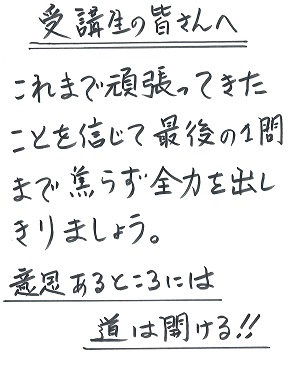 受講生の皆さんへ
これまで頑張ってきた
ことを信じて最後の1問
まで焦らず全力を出し
きりましょう。
意思あるところには
道は開ける!!